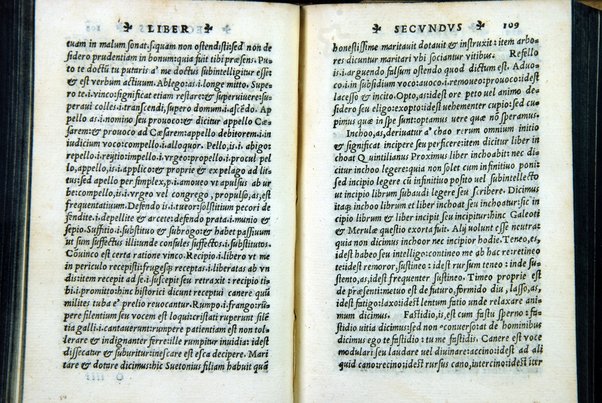 LIBER
tuam in malum sonat: siquam non ostendisti sed non de
fidero prudentiam in bonum: quia fuit tibi præsens. Pu-
to te doctū tu putaris a' me doctus subintelligitur esse:
& est verbum actiuum. Ablego: as .i. longe mitto. Supe-
ro te .i. vinco: significat etiam restare: & superuiuere: su-
peraui colles .i. transcendi, supero domum .i. ascēdo. Ap
pello as .i. nomino seu prouoco: & dicitur appello Cæ-
sarem: & prouoco ad Cæsarem: appello debitorem .i. in
iudicium voco: compello .i. alloquor. Pello, is .i. abigo:
repello .i. reijtio impello .i. vrgeo: propello .i. procul pel
lo, appello, is .i. applico: & proprie & expelago ad li-
tus: sed apello per simplex .p. .i. amoueo vt apulsus ab ur
be: compello, is .i. vrgeo vel congrego, propulso, as, est
frequentatiuum. Defendo is .i. tueor: sol stitium pecori de
fendite .i. depellite & arcete: defendo prata .i. munio &
sepio. Suffitio .i. substituo & subrogo: & habet passiuum
ut sum suffectus illi unde consules suffectos .i. substitutos.
Cōuinco est certa ratione vinco. Recipio .i. libero vt me
in periculo recepisti: fruges receptas .i. liberatas ab vn
dis: item recepit ad se .i. suscepit seu retraxit: recipio ti-
bi .i. promitto: hinc historici dicunt receptui canere quū
milites tuba e' prelio reuocantur. Rumpo .i. frango: rū
pere silentium seu vocem est loqui: cristati ruperunt silē
tia galli .i. cantauerunt: rumpere patientiam est non tol-
lerare & indignanter ferre: ille rumpitur inuidia: idest
dissecatur & suburitur: inescare est esca decipere. Mari
tare & dotare idem dicimus: hic Suetonius filiam habuit quā
SECVNDVS 109
honestissime maritauit dotauit & instruxit: item arbo
res dicuntur maritari vbi sociantur vitibus. Refello
is .i. arguendo falsum ostendo quod dictum est. Aduo-
co .i. in subsidium voco: auoco .i. remoueo: prouoco: idest
lacesso & incito. Opto, as: idest ore peto uel animo de-
sidero seu eligo: exopto, as: idest uehementer cupio: sed cu
pimus quæ in spe sunt: optamus uere quæ nō speramus.
Inchoo, as, deriuatur a' chao rerum omnium initio
& significat incipere seu perficere: item dicitur liber in
choat Quintilianus Proximus liber inchoabit: nec di-
citur inchoo legere: quia non solet cum infinitiuo poni:
sed incipio legere cū infinitiuo posito uel subintellecto
ut incipio librum subaudi legere seu scribere. Dicimus
inchoo librum et liber inchoat seu inchoatur: sic in
cipio librum & liber incipit seu incipitur: hinc Galeoti
& Merulæ questio exorta fuit. Alij volunt esse neutra:
quia non dicimus inchoor nec incipior hodie. Teneo, es,
idest habeo seu intelligo: contineo me ab hac re: retineo
te: idest remoror, sustineo: idest rursum teneo: inde su-
stento, as, idest frequenter sustineo. Timeo proprie est
de præsenti: metuo est de futuro, formido diu, lasso, as,
idest fatigo: laxo: idest lentum fatio unde relaxare ani-
mum dicimus. Fastidio, is, est cum fastu sperno: fa-
stidio uitia dicimus: sed non e'conuerso: at de hominibus
dicimus ego te fastidio: tu me fastidis. Canere est voce
modulari seu laudare uel diuinare: accino: idest ad ali
quid cano: recino: idest rursus cano, intercino: idest in-